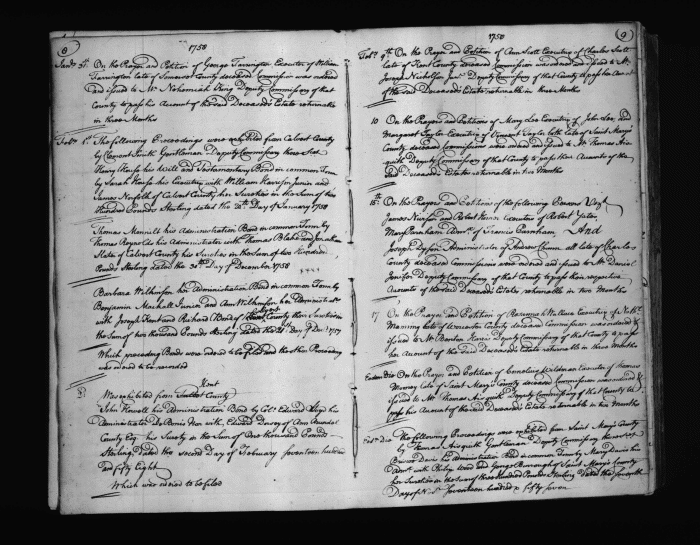 8
1758
Jan.y 31. On the Prayer and Petition of George Tarrington Executor of William
Tarrington late of Somerset County deceased Commission was ordered
and issued to Mr. Nehemiah King Deputy Commissary of that
County to pass his Account of the said Deceased's Estate returnable
in three Months
Feb.y 1. The following Proceedings were exhibited from Calvert County
by Clement Smith Gentleman Deputy Commissary thereof Viz.t
Henry his Will and Testamentary Bond in common Form
by Sarah his Executrix with William Harrison Junior and
James Norfolk of Calvert County her Sureties in the Sum of two
Hundred Pounds Sterling dated the Day of January 1758
Thomas his Administration Bond in common Form by
Thomas Reynolds his Administrator with Thomas Blake and Jonathan
Slater of Calvert County his Sureties in the Sum of two Hundred
Pounds Sterling dated the 30th Day of December 1758
Barbara Wilkinson her Administration Bond in common Form by
Benjamin Mackall Junior and Ann Wilkinson her Administrators
with Joseph and Richard of County their Sureties in
the Sum of two thousand Pounds Sterling Dated the Day of Dec.r 1757
Which preceding Bonds were ordered to be filed and the other Proceedings
was ordered to be recorded
2. Was exhibited from Kent County
John his Administration Bond by Col.o Edward his
Administrator with Edward Dorsey of Ann Arundel
County Esq. his Surety in the Sum of One thousand Pounds
Sterling Dated the Second Day of February Seventeen hundred
and fifty Eight
Which was ordered to be filed
1758
9
Feb.y 9th On the Prayer and Petition of Ann Scott Executrix of Charles Scott
late of Kent County deceased Commission ordered and issued to Mr.
Joseph Nicholson Jun.r Deputy Commissary of that County to pass her Account
of the said Deceased's Estate returnable in three Months
10 On the Prayers and Petitions of Mary Lee Executrix of John Lee, and
Margaret Taylor Executrix of Vincent Taylor both late of Saint Mary's
County deceased Commissions were ordered and issued to Mr. Thomas
Deputy Commissary of that County to pass their Accounts of the
said Deceased's Estates returnable in two Months
15th On the Prayers and Petitions of the following Persons Viz.t
James and Robert Executors of Robert Yates,
Mary Adm.x of Francis And
Joseph Administrator of Andrew all late of Charles
County deceased Commissions were ordered and issued to Mr. Daniel
Jenifer Deputy Commissary of that County to pass their respective
Accounts of the said Deceased's Estates returnable in two Months
17 On the Prayer and Petition of Wallace Executrix of
late of Worcester County deceased Commission was ordered &
issued to Mr. Benton Harris Deputy Commissary of that County to pass
her Account of the said Deceased's Estate returnable in three Months
Eodem Die On the Prayer and Petition of Cornelius Wildman Executor of Thomas
Murray late of Saint Mary's County deceased Commission was ordered &
issued to Thomas Deputy Commissary of that County to
pass his Account of the said Deceased's Estate returnable in two Months
Eod.m Die The following Proceedings were exhibited from Saint Mary's County
by Thomas Gentleman Deputy Commissary thereof Viz.t
Davis his Administration Bond in common Form by Mary Davis his
Adm.x with Philip and George of Saint Mary's County
her Sureties in the Sum of three Hundred Pounds Sterling Dated the
Day of Seventeen hundred & fifty seven